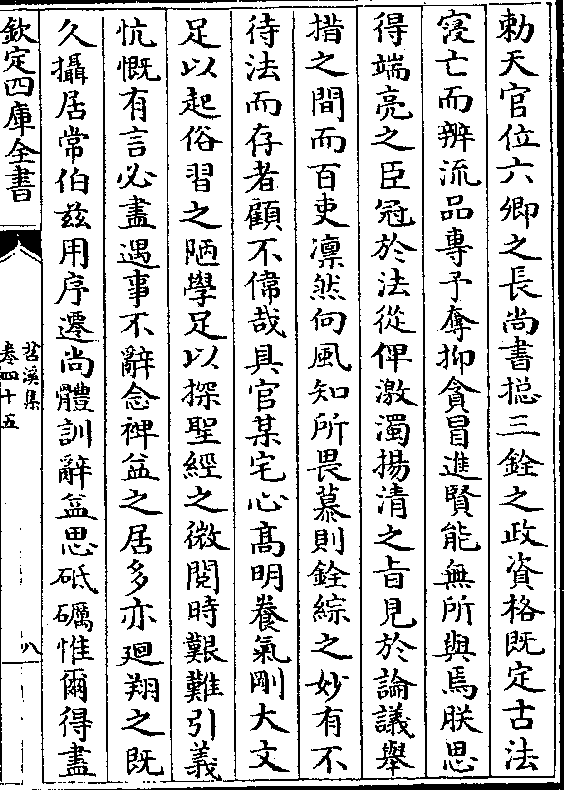 勅天官位六卿之長尚書摠三銓之政資格既定古法
寖亡而辨流品專予奪抑貪冒進賢能無所與焉朕思
得端亮之臣冠於法從俾激濁揚清之旨見於論議舉
措之間而百吏凛然向風知所畏慕則銓綜之妙有不
待法而存者顧不偉哉具官某宅心髙明養氣剛大文
足以起俗習之陋學足以探聖經之微閱時艱難引義
忼慨有言必盡遇事不辭念裨益之居多亦廻翔之既
久攝居常伯兹用序遷尚體訓辭益思砥礪惟爾得盡
欽定四庫全書
苕溪集
卷四十五
八